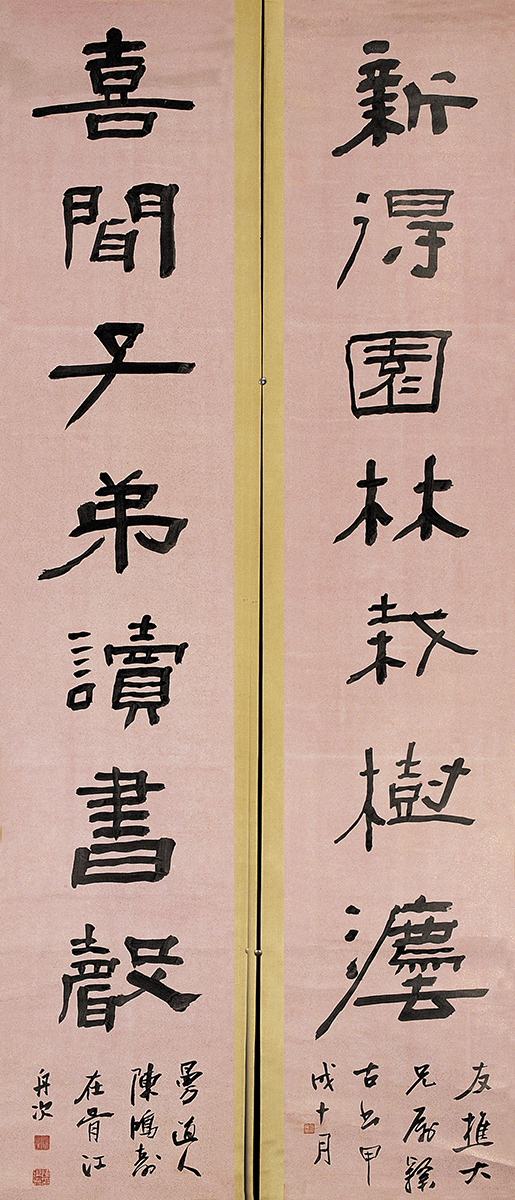 新得園林栽樹灋
友樵大
兄屬隸
古書甲
戌十月
喜聞子弟讀書聲
曼道人
陳鴻壽
在胥江
舟次